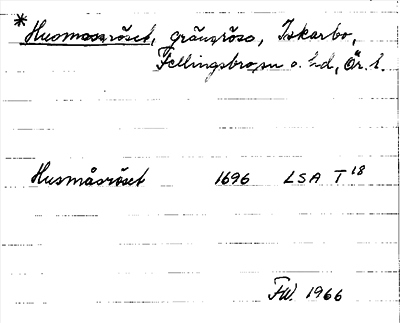 *Husmossröset, gränsröse, Iskarbo,
Fellingsbro sn o. hd, Ör. l.
Husmåsröset 1696 LSA T 18
FW. 1966